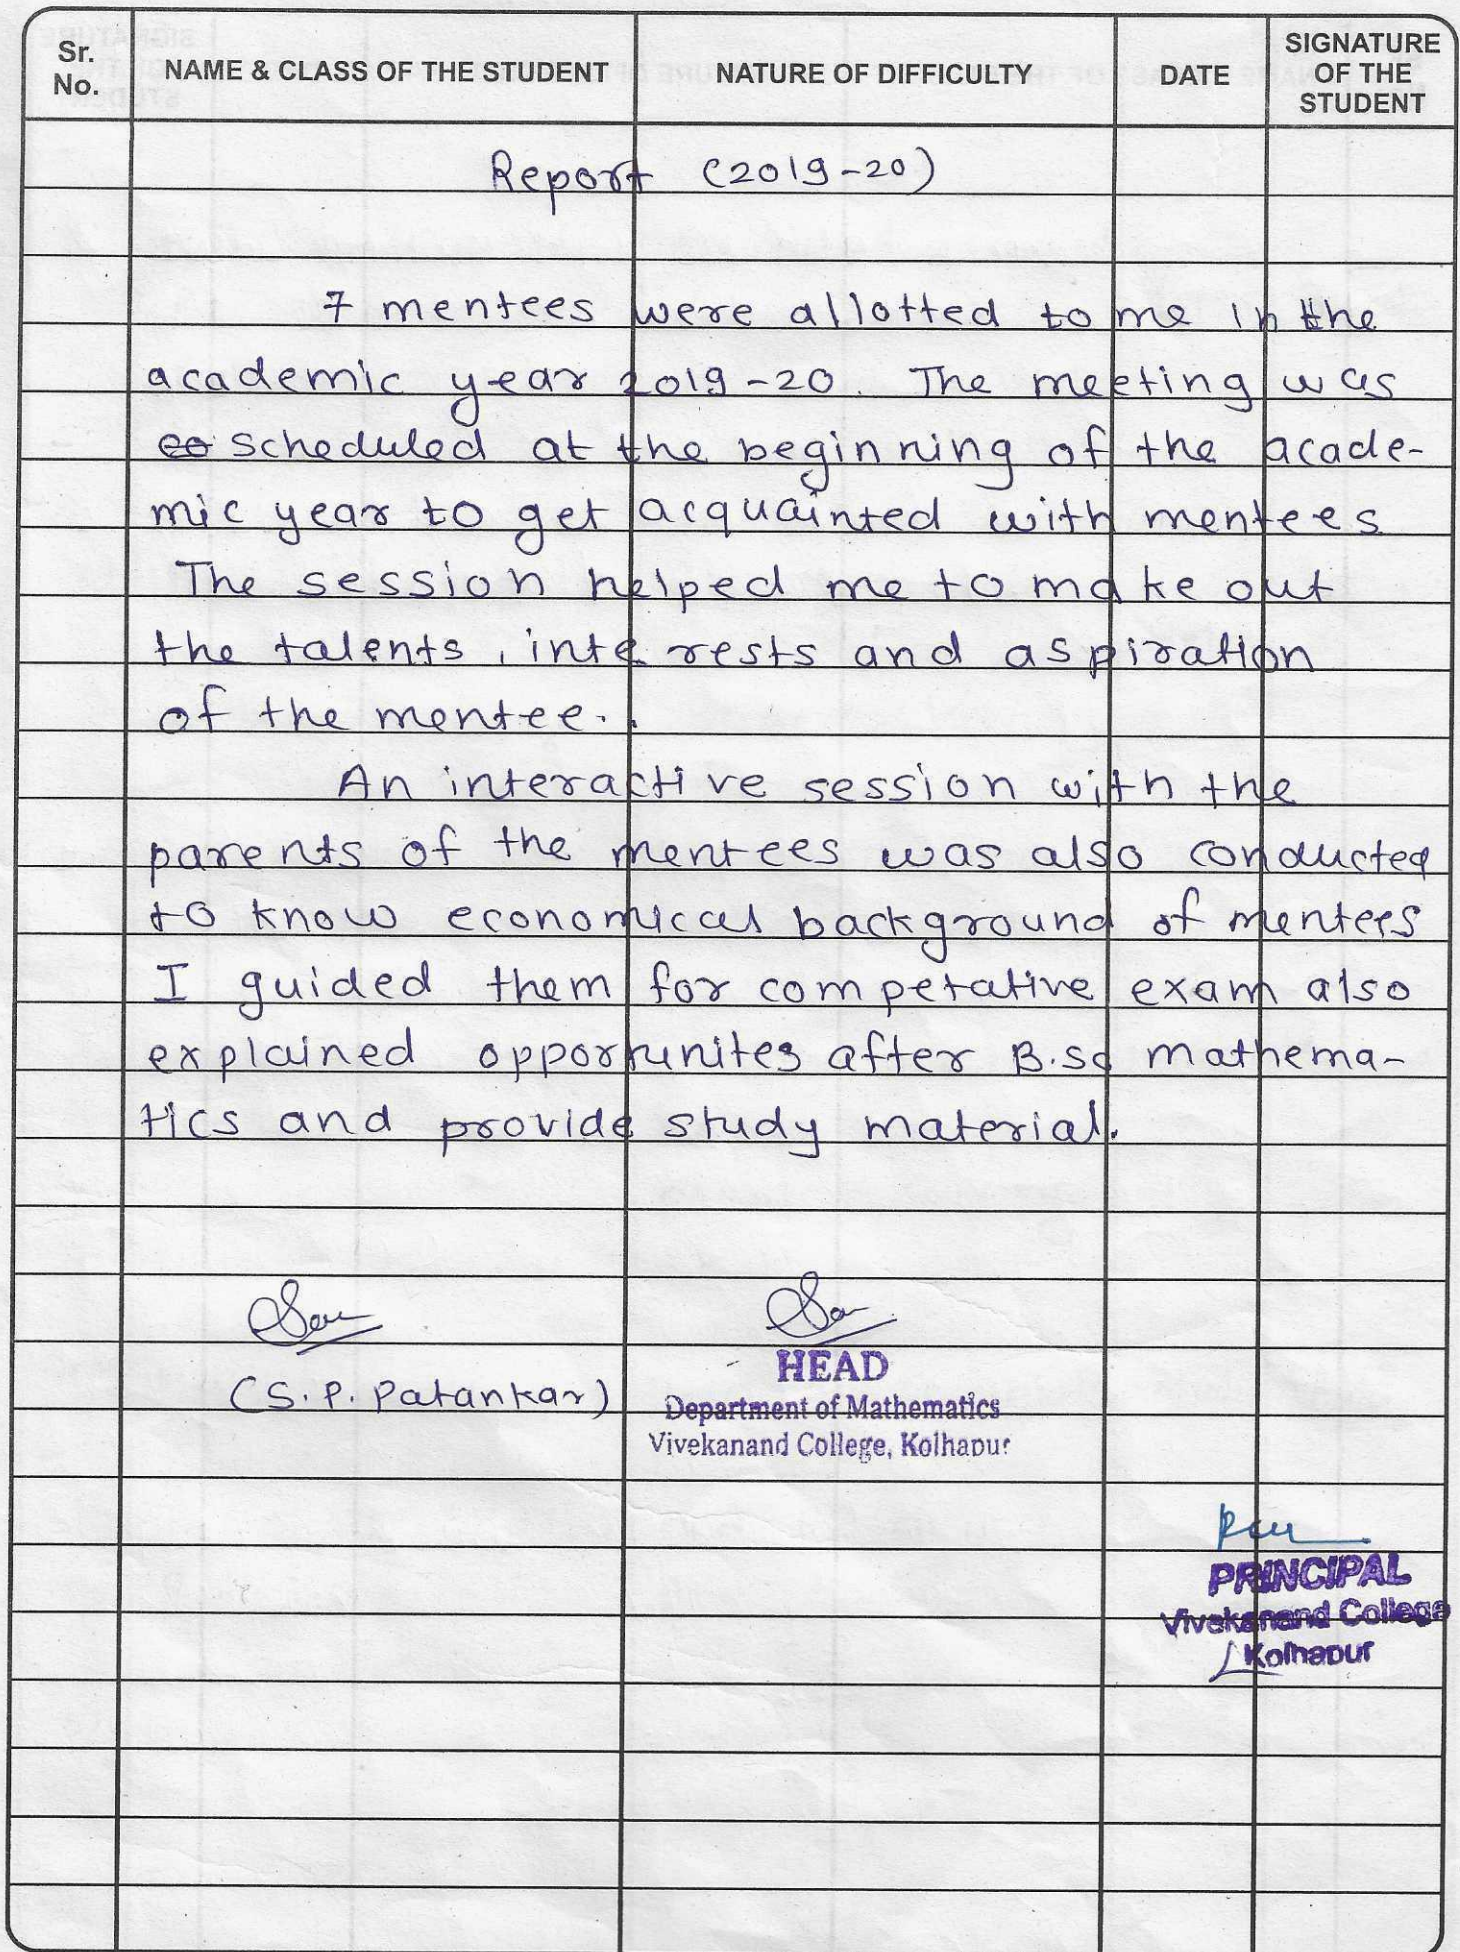 Sr. No. NAME & CLASS OF THE STUDENT NATURE OF DIFFICULTY DATE SIGNATURE OF THE STUDENT
Report (2019-20)
7 mentees were allotted to me in the
academic year 2019-20. The meeting was
scheduled at the beginning of the acade-
mic year to get acquainted with mentees
The session helped me to make out
the talents, interests and aspiration
of the mentee.
An interactive session with the
parents of the mentees was also conducted
to know economical background of mentees
I guided them for competative exam also
explained opportunites after B.Sc mathema-
tics and provide study material.
(S. P. Patankar)
HEAD
Department of Mathematics
Vivekanand College, Kolhapur
PRINCIPAL
Vivekanand College
Kolhapur